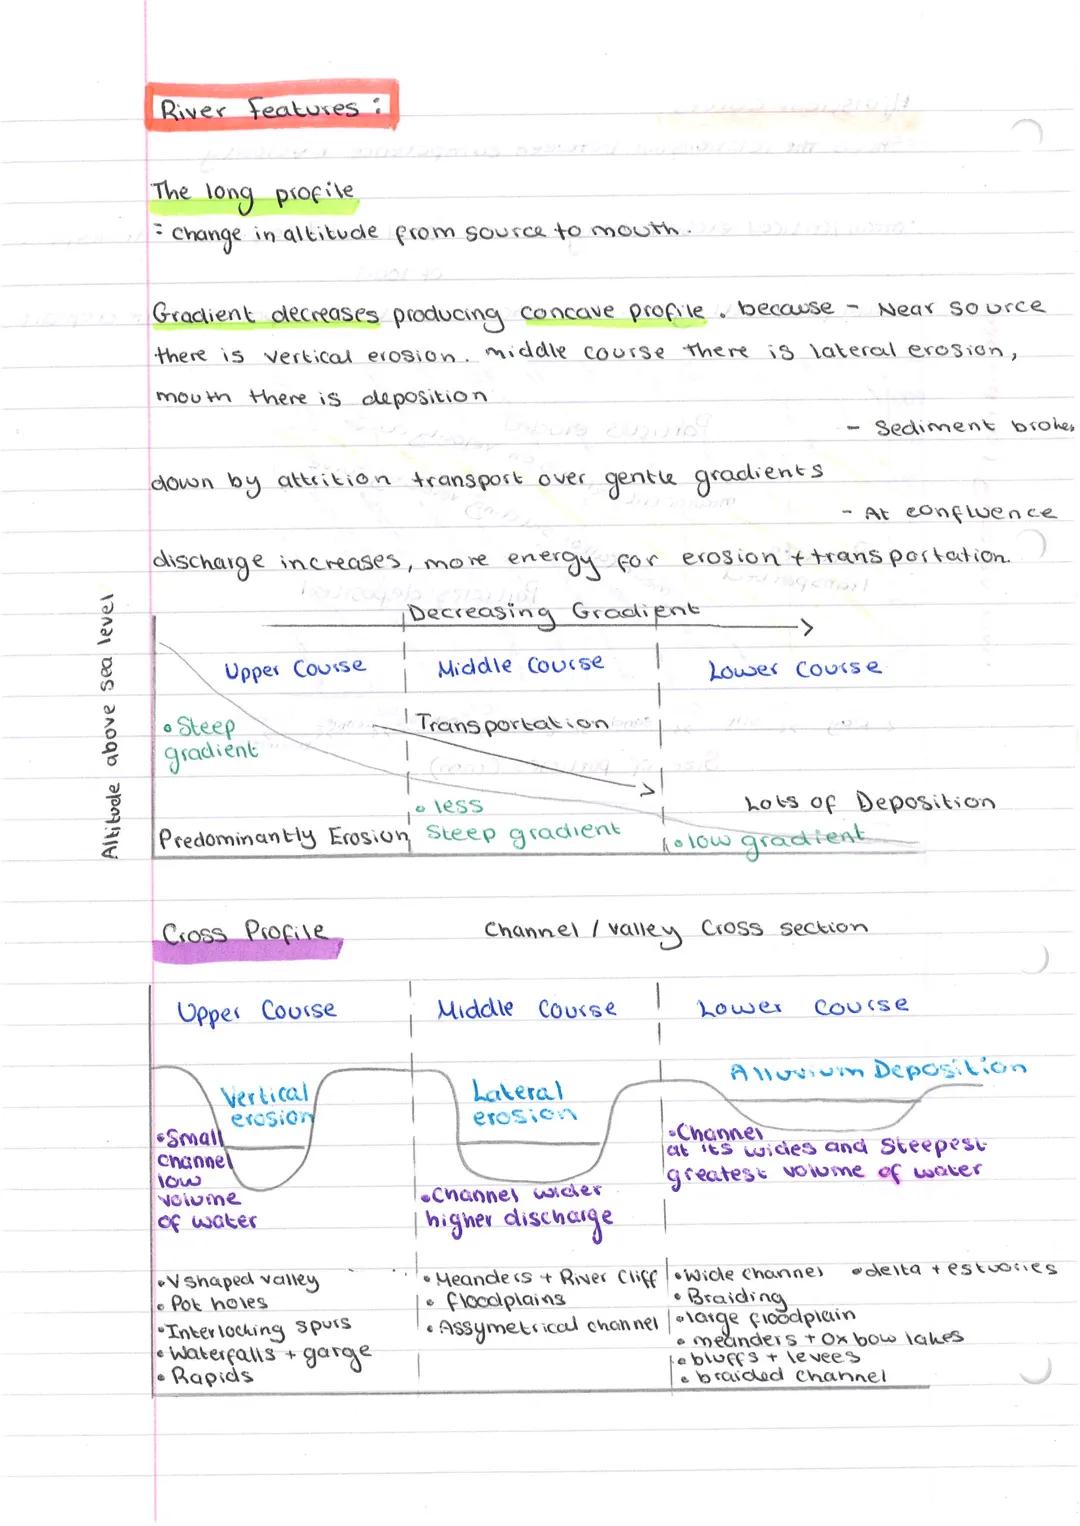 River features :
The long profile
= change in altitude from source to mouth.
Gradient decreases producing concave profile. because - Near source
there is vertical erosion. middle course there is lateral erosion,
mouth there is deposition
- Sediment broken
down by attrition transport over gentle gradients
- At confluence
discharge increases, more energy for erosion + transportation.
Altitude above sea level
Decreasing Gradient
Upper Course
Middle Course
Lower Course
• Steep
gradient
Transportation
Predominantly Erosion
• less
Steep gradient
Lots of Deposition
• low gradient
Cross Profile
Channel / valley Cross section
Upper Course
Middle Course
Lower Course
Vertical
erosion
Lateral
erosion
Alluvium Deposition
• Small
channel
low
volume
of water
• Channel wider
higher discharge
• Channel
at its wides and Steepest
greatest volume of water
• V shaped valley
• Pot holes
• Interlocking spurs
• Waterfalls + garge
• Rapids
• Meanders + River Cliff
• floodplains
• Assymetrical channel
• wide channel • delta + estuaries
• Braiding
• large floodplain
• meanders + Ox bow lakes
• bluffs + levees
• braided channel